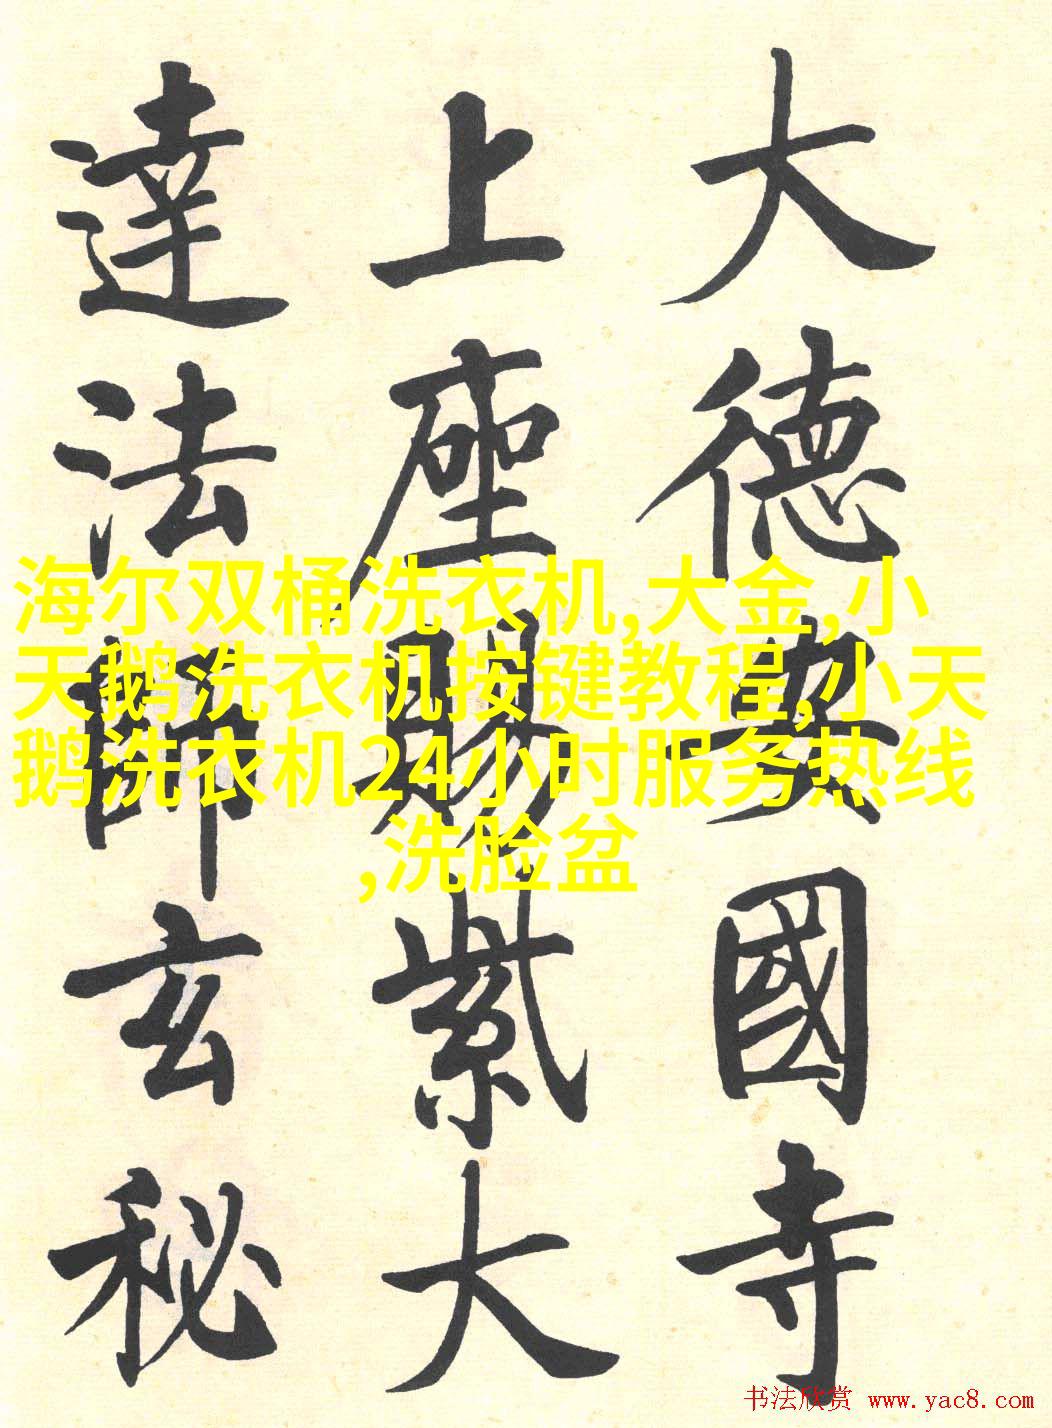 大德安國寺
上座賜紫大
達法師玄秘
海尔双桶洗衣机,大金,小
天鹅洗衣机按键教程,小天
鹅洗衣机24小时服务热线
,洗脸盆
书法欣赏 www.yac8.com